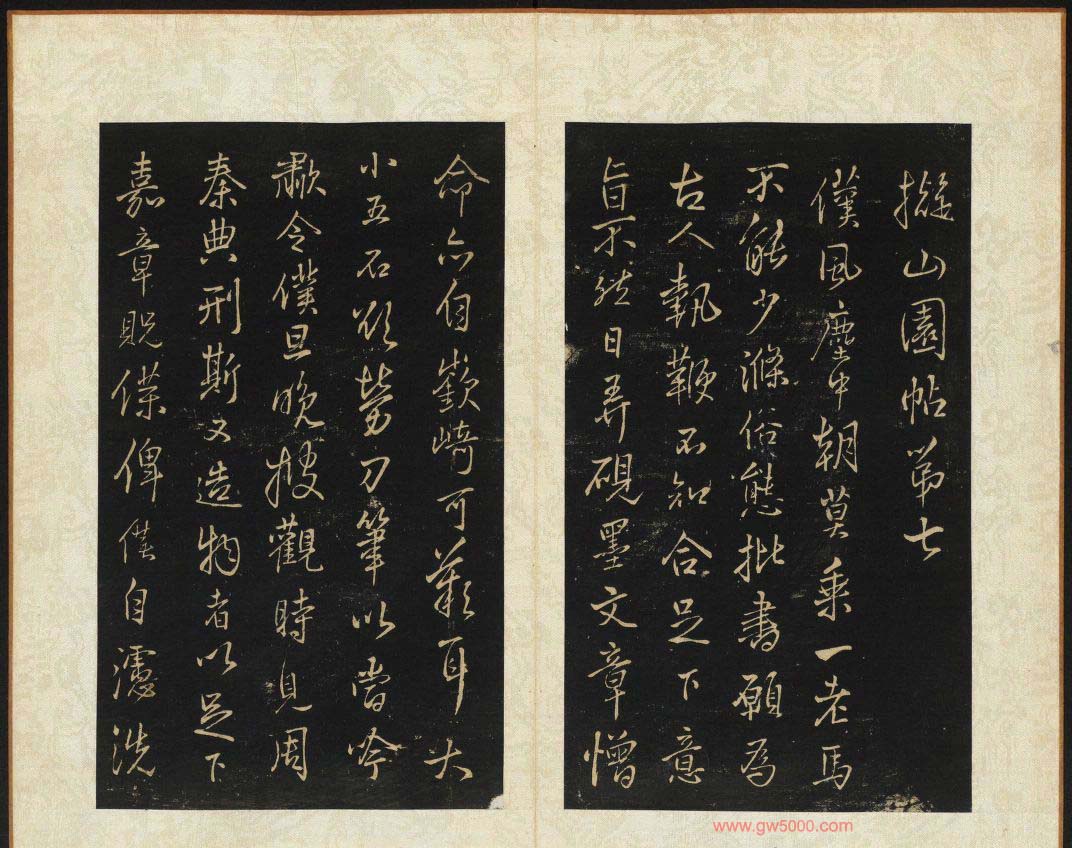 擬山園帖第七
僕風塵中朝莫乘一老馬
不能少滌俗態批書願為
古人執鞭不知合足下意
旨不然日弄硯墨文章憎
命亦自嶔崎可歎耳大
小五石欲勞刀筆以當吟
歗令僕旦晚披觀時見周
秦典刑斯又造物者以足下
嘉章貺僕俾僕自濾洗
www.gw5000.com